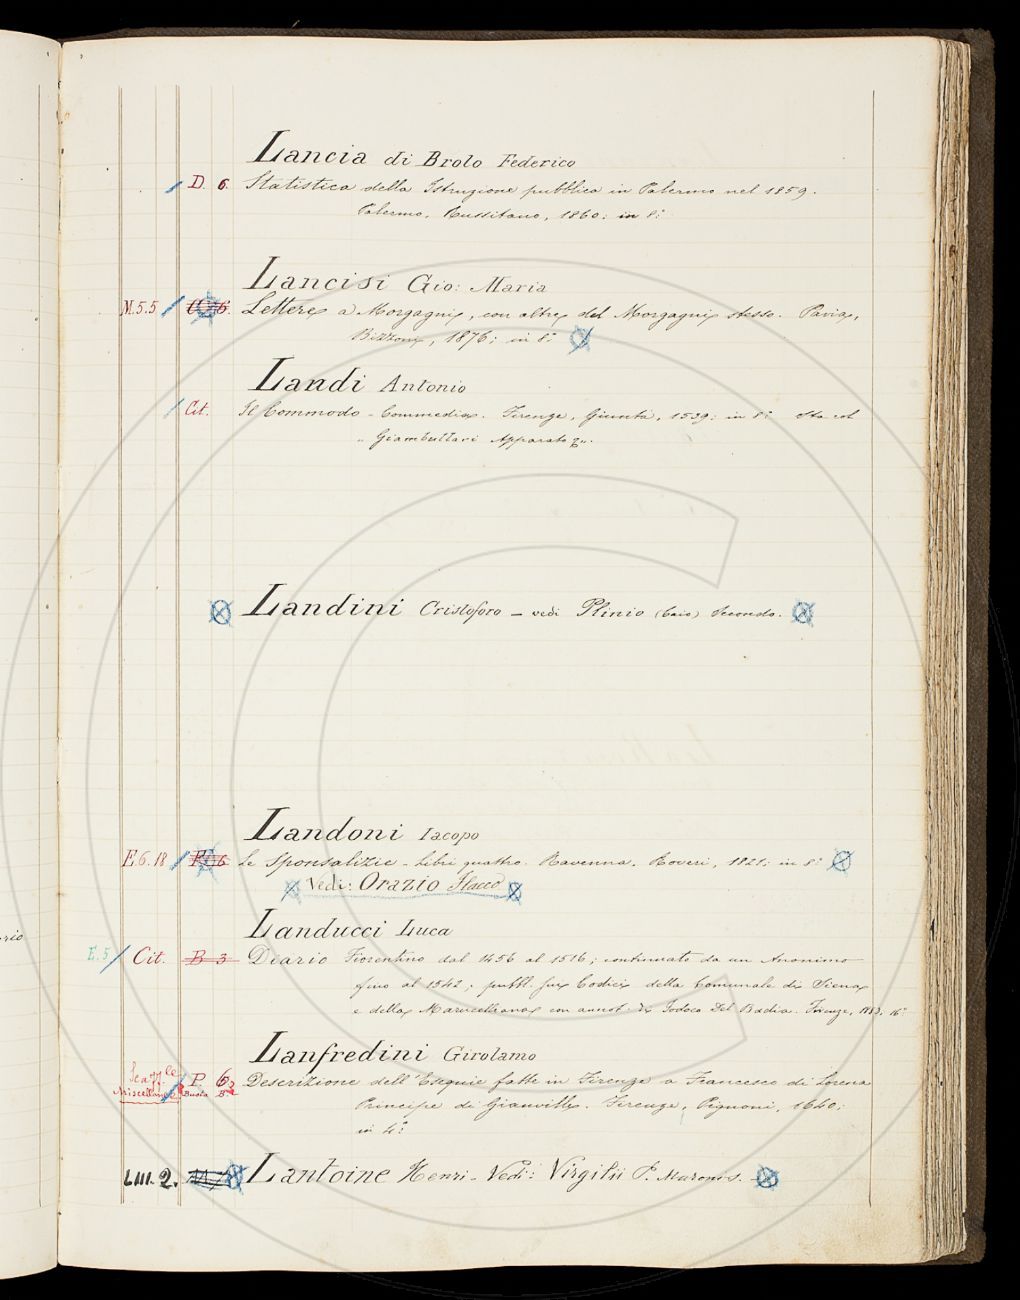 Lancia di Brolo Federico
D. 6. Statistica della Istruzione pubblica in Palermo nel 1859.
Palermo, 1860; in 8.°
Lancisi Gio: Maria
M.5.5 Lettere a Morgagni, con altre del Morgagni stesso. Pavia,
Bizzoni, 1876; in 8.°
Landi Antonio
Cit. Il Commodo - Commedia. Firenze, Giunti, 1539; in 8.° Sta col
" Giambullari Apparato &".
Landini Cristoforo - vedi Plinio (Caio) Secondo.
Landoni Iacopo
F.6.18 F. 6 Le Sponsalizie - Libri quattro. Ravenna, Roveri, 1821; in 8.°
Vedi: Orazio Flacco
Landucci Luca
E.5 Cit. B 3 Diario Fiorentino dal 1456 al 1516; continuato da un Anonimo
fino al 1542; pubbl. sui Codici della Comunale di Siena
e della Marucelliana con annot. di Iodoco Del Badia. Firenze, 1883, 16.°
Lanfredini Girolamo
P. 6 Descrizione dell'Esequie fatte in Firenze a Francesco di Lorena
Miscellanea Busta
Principe di Gianville. Firenze, Pignoni, 1640;
in 4.°
LIII. 2. Lantoine Henri - Vedi: Virgilii P. Maronis.
orio